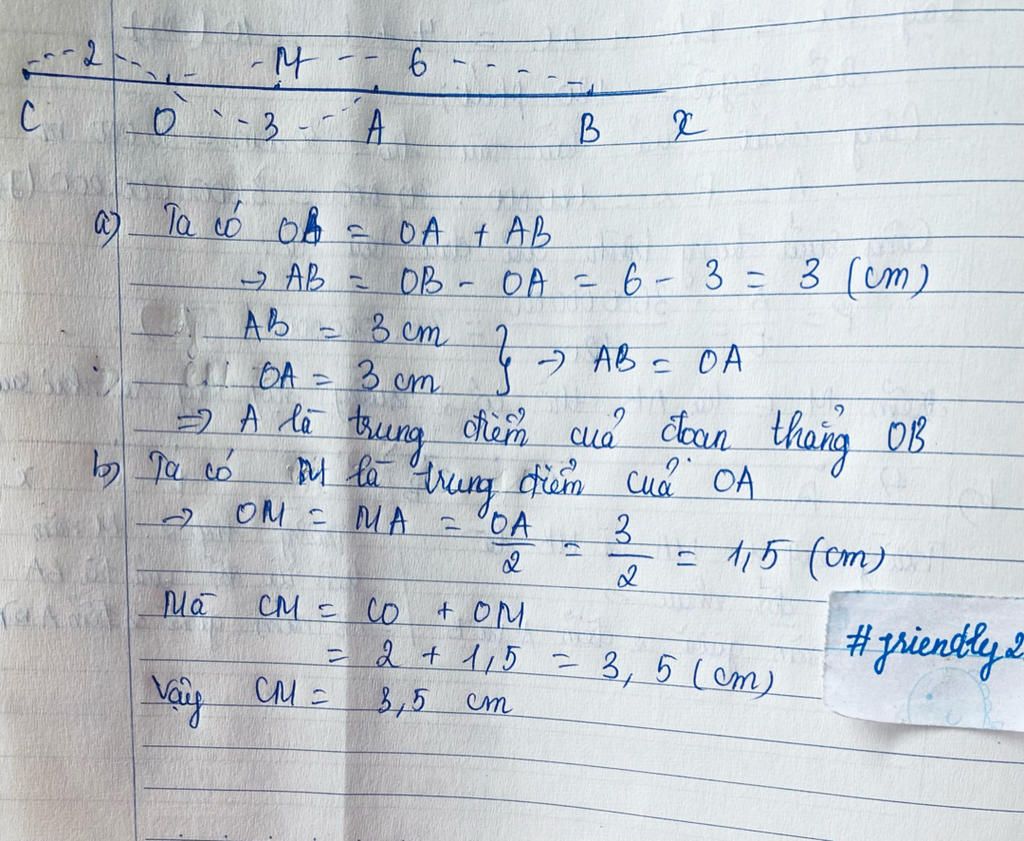 2 M 6
C O 3 A B x
a) Ta có OB = OA + AB
→ AB = OB - OA = 6 - 3 = 3 (cm)
AB = 3 cm
OA = 3 cm } → AB = OA
⇒ A là trung điểm cuả đoan thẳng OB
b) Ta có M là trung điểm cuả OA
→ OM = MA = OA/2 = 3/2 = 1,5 (cm)
Mà CM = CO + OM
= 2 + 1,5 = 3,5 (cm)
Vậy CM = 3,5 cm
#friendly2